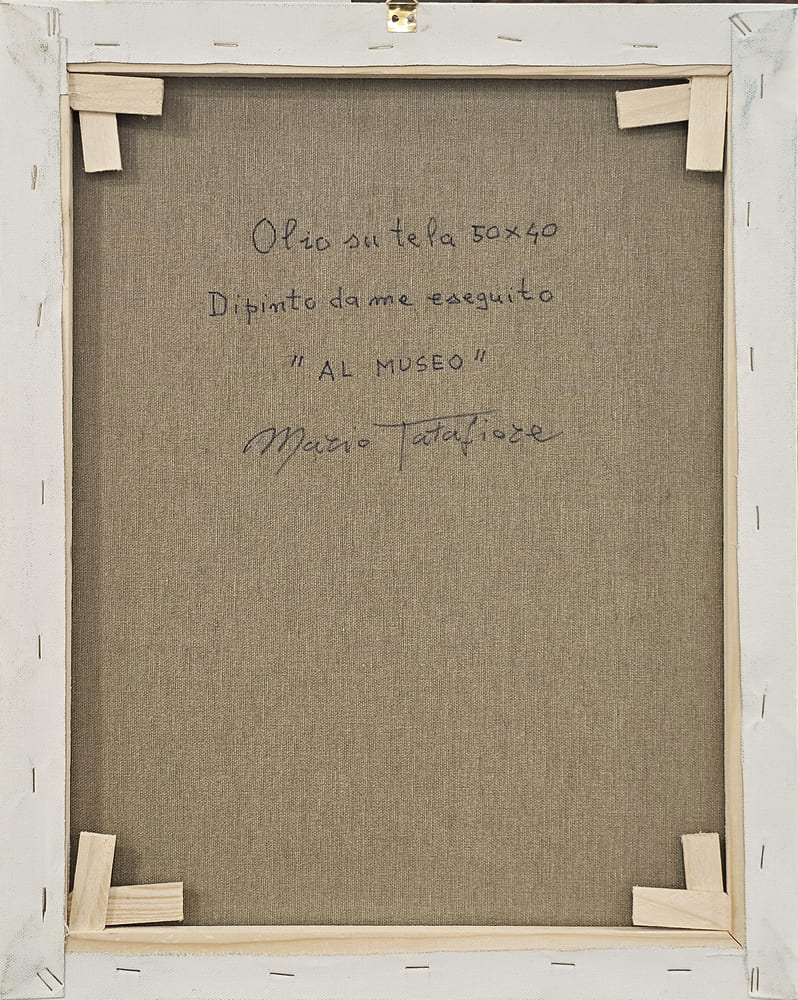 Olio su tela 50x40
Dipinto da me eseguito
"AL MUSEO"
Mario Tatafiore